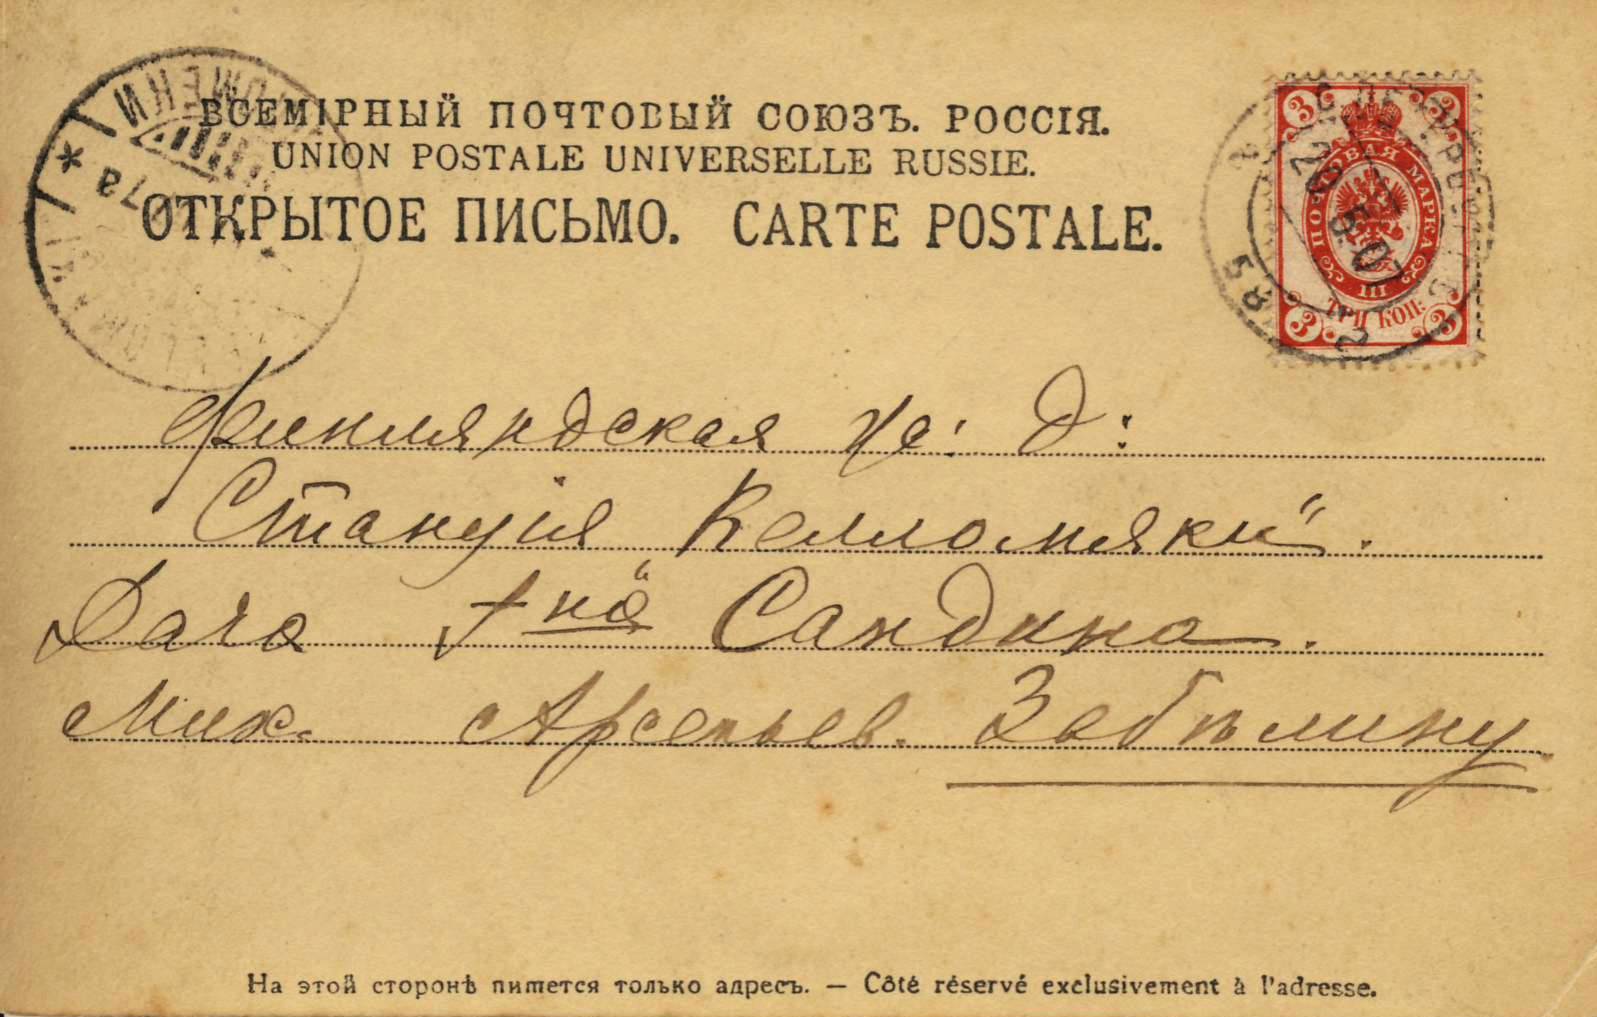 ВСЕМІРНЫЙ ПОЧТОВЫЙ СОЮЗЪ. РОССІЯ.
UNION POSTALE UNIVERSELLE RUSSIE.
ОТКРЫТОЕ ПИСЬМО. CARTE POSTALE.
ПОЧТОВАЯ МАРКА
3 3
III
ТРИ КОП:
3 3
Финляндская же: д:
Станція Келломяки".
Дача Сандина.
Мих. Арсеньев. Забѣлину
На этой сторонѣ пишется только адресъ. — Côté réservé exclusivement à l'adresse.